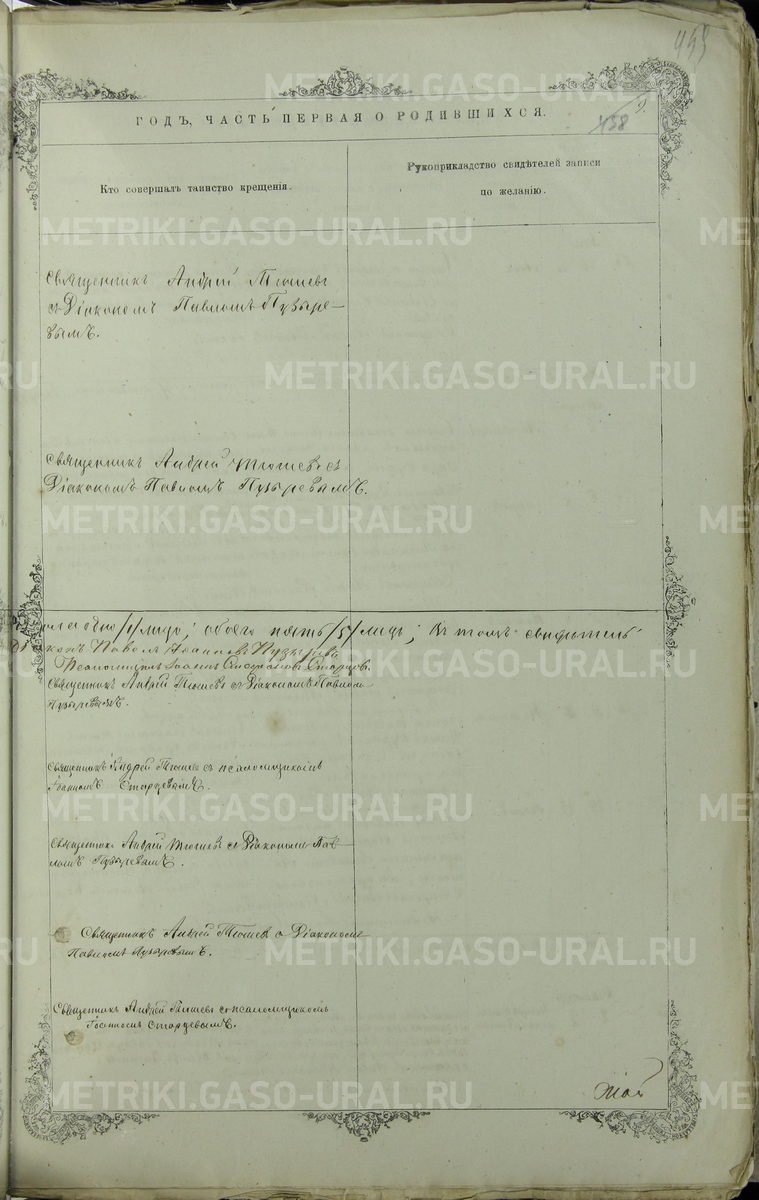 453
METRIKI.GASO-URAL.RU
ГОДЪ, ЧАСТЬ ПЕРВАЯ О РОДИВШИХСЯ.
458
9.
Кто совершалъ таинство крещенія.
Рукоприкладство свидѣтелей записи
по желанію.
Священникъ Андрей
съ Діакономъ Павломъ Пузыре-
вымъ.
Священникъ Андрей съ
Діакономъ Павломъ Пузыревымъ.
одно /1/ лицо, обоего пять /5/ лицъ; въ томъ свидѣтель
Павелъ Іоанновъ Пузыревъ
Псаломщикъ Іоаннъ Старцевъ.
Священникъ Андрей съ Діакономъ Павломъ
Пузыревымъ.
Священникъ Андрей съ псаломщикомъ
Іоанномъ Старцевымъ.
Священникъ Андрей съ Діакономъ Пав-
ломъ Пузыревымъ.
Священникъ Андрей съ Діакономъ
Павломъ Пузыревымъ.
Священникъ Андрей съ псаломщикомъ
Іоанномъ Старцевымъ.
Май